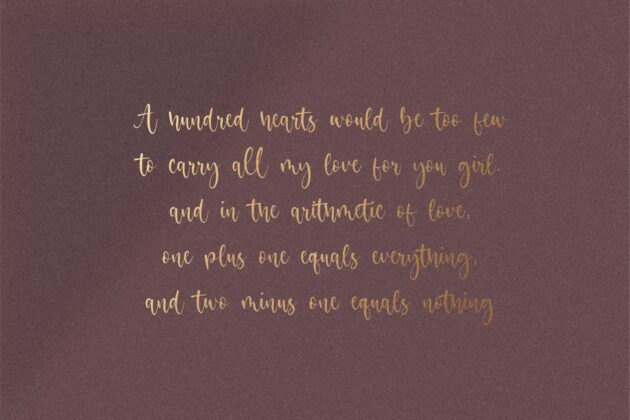 A hundred hearts would be too few
to carry all my love for you girl.
and in the arithmetic of love,
one plus one equals everything,
and two minus one equals nothing